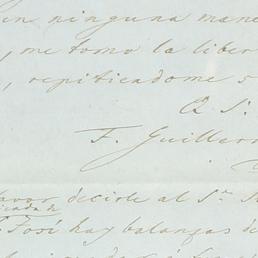 en ninguna mane
, me tomo la liber
, repiticadome s
Q. S.
F. Guillerm
favor decirle al Sr.
José hay balanzas de